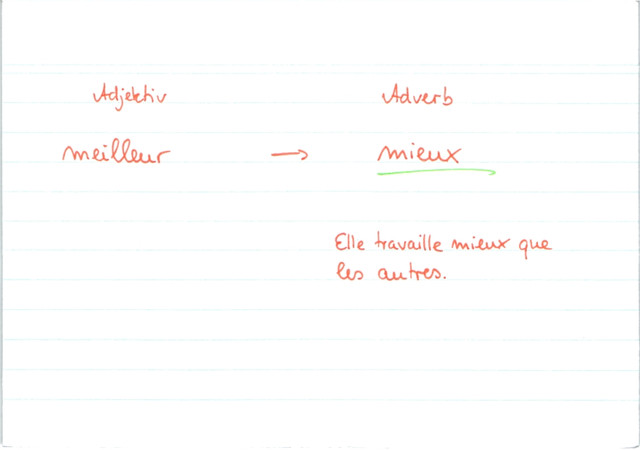 Adjektiv Adverb
meilleur → mieux
Elle travaille mieux que
les autres.